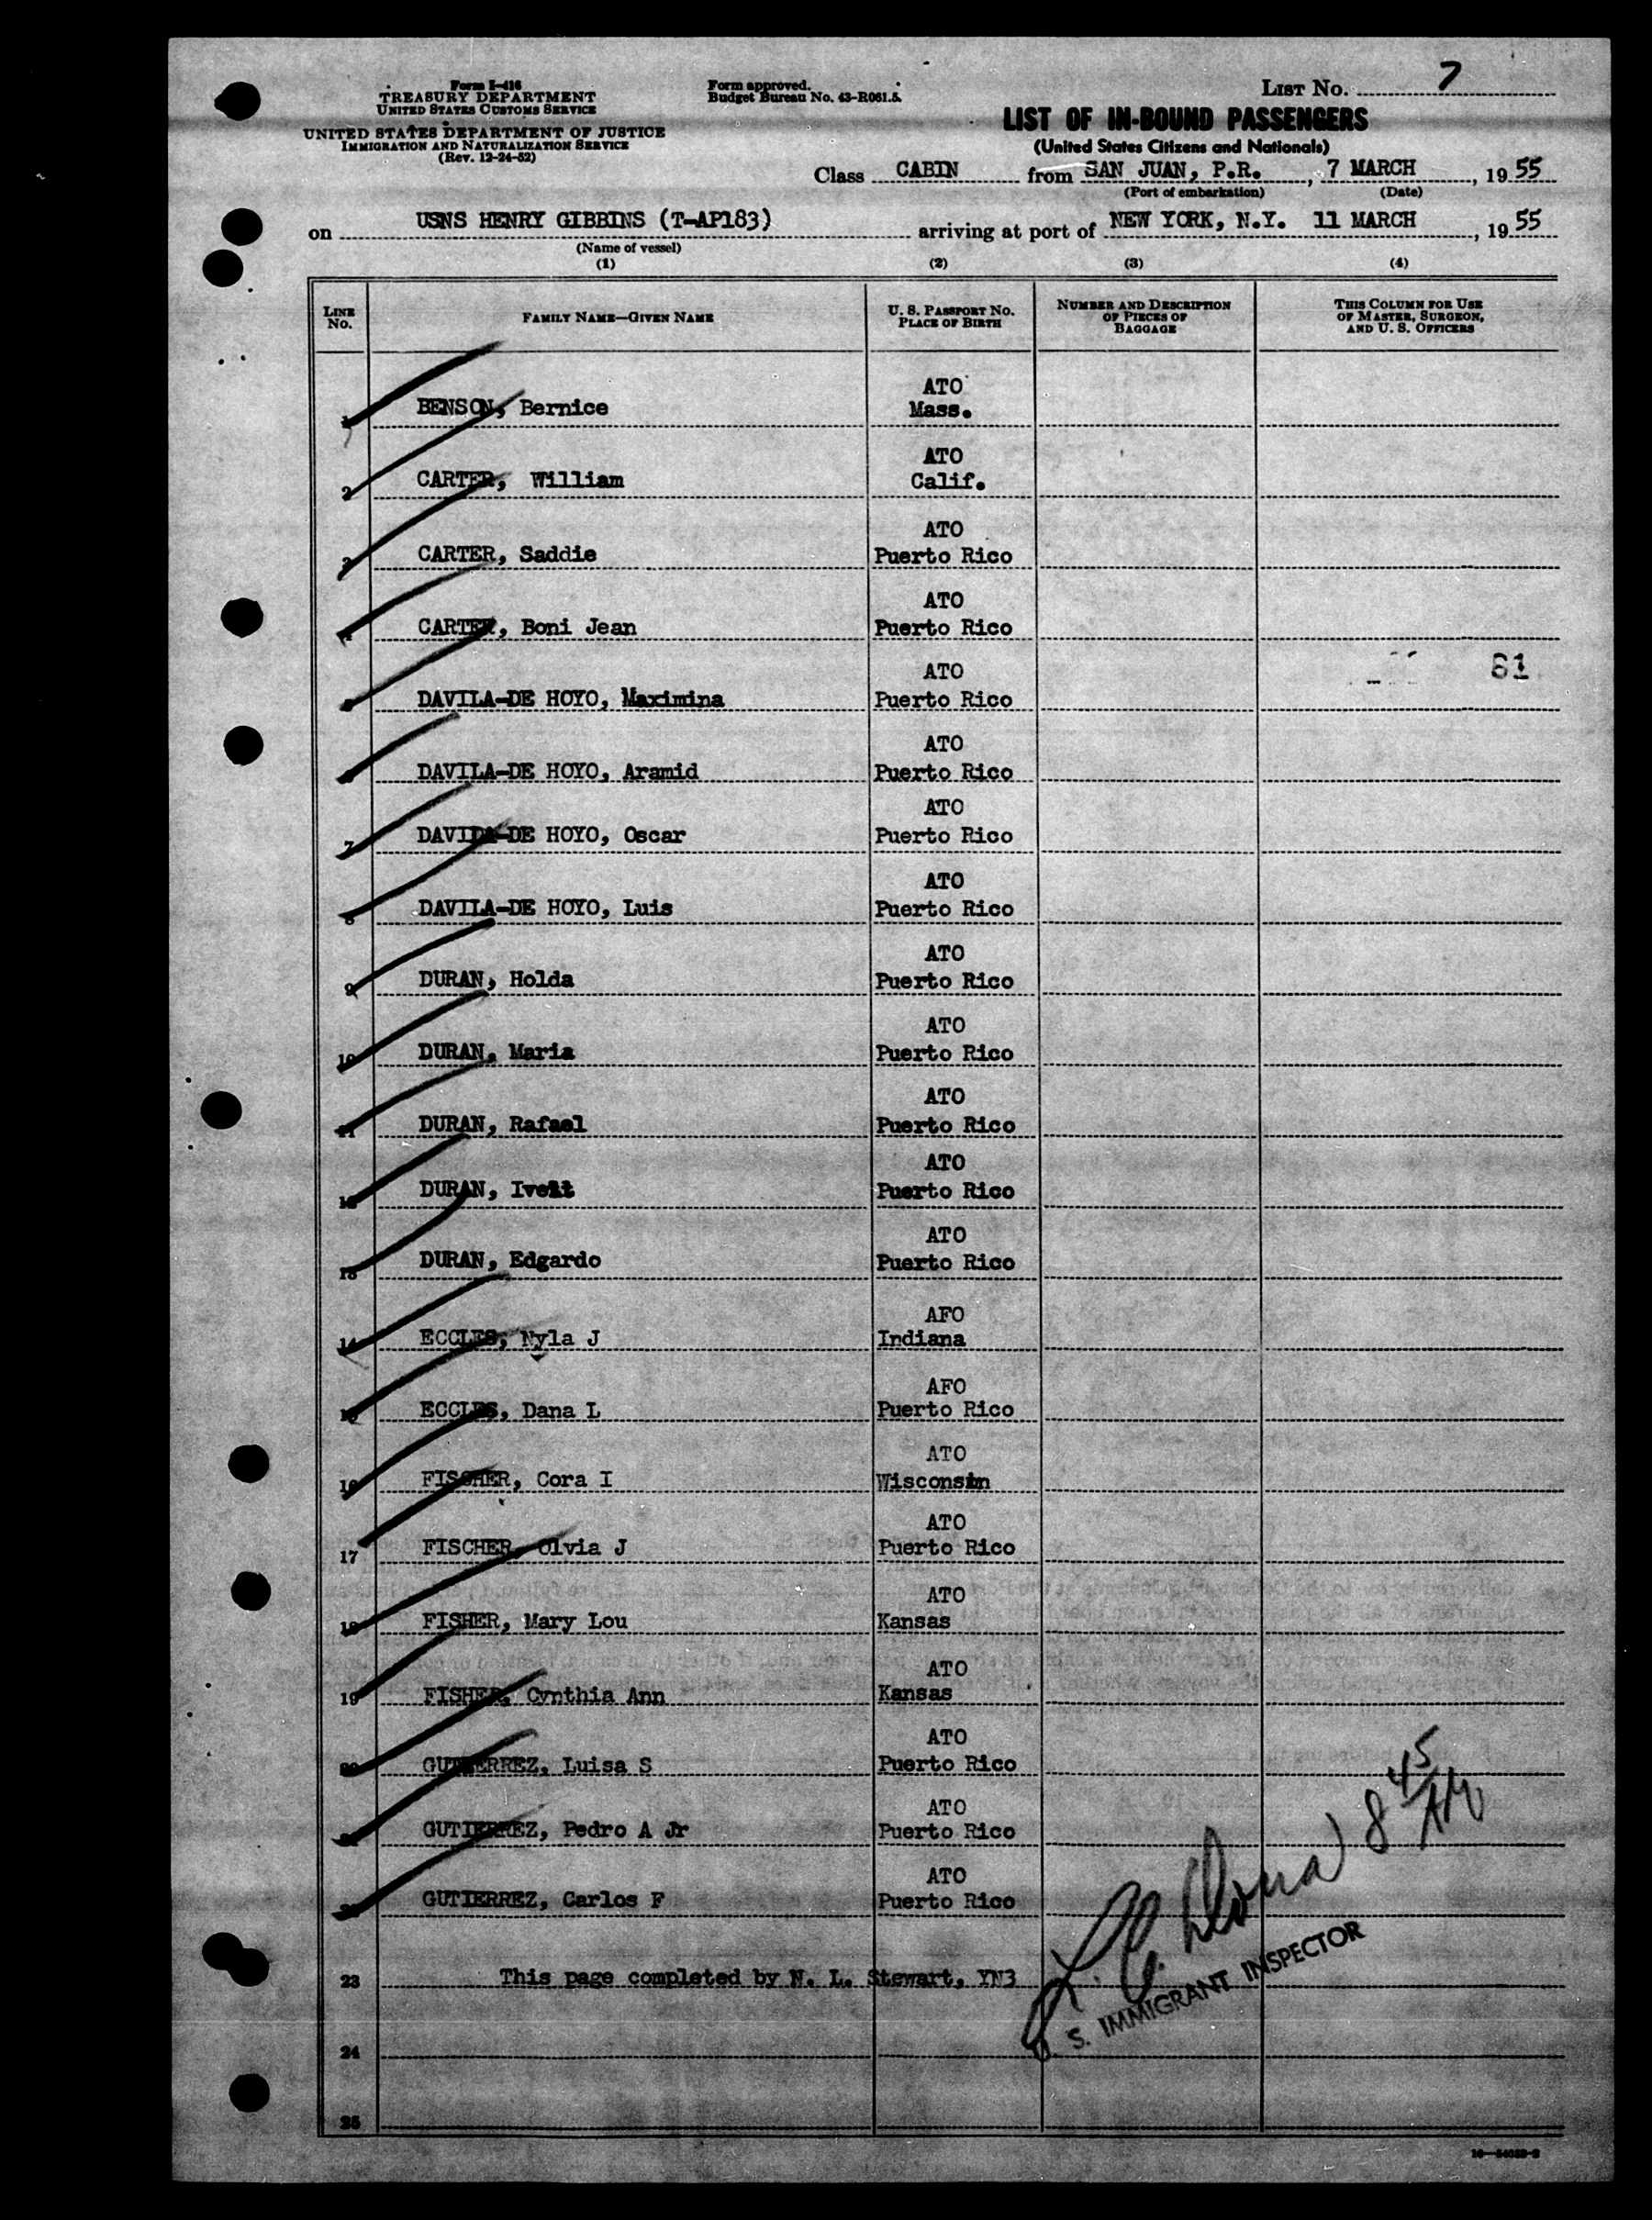 Form I-416
TREASURY DEPARTMENT
UNITED STATES CUSTOMS SERVICE
UNITED STATES DEPARTMENT OF JUSTICE
IMMIGRATION AND NATURALIZATION SERVICE
(Rev. 12-24-52)
Form approved.
Budget Bureau No. 43-R061.5.
LIST No. 7
LIST OF IN-BOUND PASSENGERS
(United States Citizens and Nationals)
Class CABIN from SAN JUAN, P.R., 7 MARCH, 1955
(Port of embarkation) (Date)
on USNS HENRY GIBBINS (T-AP183) arriving at port of NEW YORK, N.Y. 11 MARCH, 1955
(Name of vessel)
(1) (2) (3) (4)
LINE No. FAMILY NAME—GIVEN NAME U. S. PASSPORT No. PLACE OF BIRTH NUMBER AND DESCRIPTION OF PIECES OF BAGGAGE THIS COLUMN FOR USE OF MASTER, SURGEON, AND U. S. OFFICERS
ATO
1 BENSON, Bernice Mass.
ATO
2 CARTER, William Calif.
ATO
3 CARTER, Saddie Puerto Rico
ATO
4 CARTER, Boni Jean Puerto Rico
ATO 81
5 DAVILA-DE HOYO, Maximina Puerto Rico
ATO
6 DAVILA-DE HOYO, Aramid Puerto Rico
ATO
7 DAVILA-DE HOYO, Oscar Puerto Rico
ATO
8 DAVILA-DE HOYO, Luis Puerto Rico
ATO
9 DURAN, Holda Puerto Rico
ATO
10 DURAN, Maria Puerto Rico
ATO
11 DURAN, Rafael Puerto Rico
ATO
12 DURAN, Ivett Puerto Rico
ATO
13 DURAN, Edgardo Puerto Rico
AFO
14 ECCLES, Nyla J Indiana
AFO
15 ECCLES, Dana L Puerto Rico
ATO
16 FISCHER, Cora I Wisconsin
ATO
17 FISCHER, Olvia J Puerto Rico
ATO
18 FISHER, Mary Lou Kansas
ATO
19 FISHER, Cynthia Ann Kansas
ATO
20 GUTIERREZ, Luisa S Puerto Rico
ATO
21 GUTIERREZ, Pedro A Jr Puerto Rico
8 45 AM
ATO
22 GUTIERREZ, Carlos F Puerto Rico
23 This page completed by N. L. Stewart, YN3
S. IMMIGRANT INSPECTOR
24
25